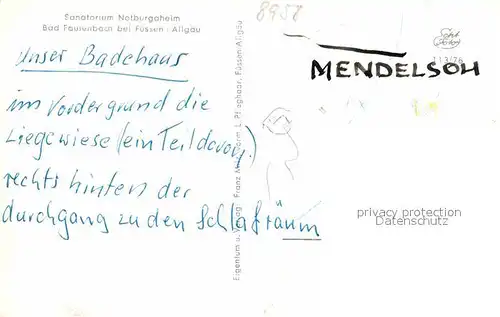 Sanatorium Notburgaheim
Bad Faulenbach bei Füssen · Allgäu
unser Badehaus
im Vordergrund die
Liegewiese (ein Teil davon)
rechts hinten der
durchgang zu den Schlafräum
8958
MENDELSOH
113/76
Eigentum u. Verlag Franz Milz
L. Pfaghaar, Füssen-Allgäu
privacy protection
Datenschutz